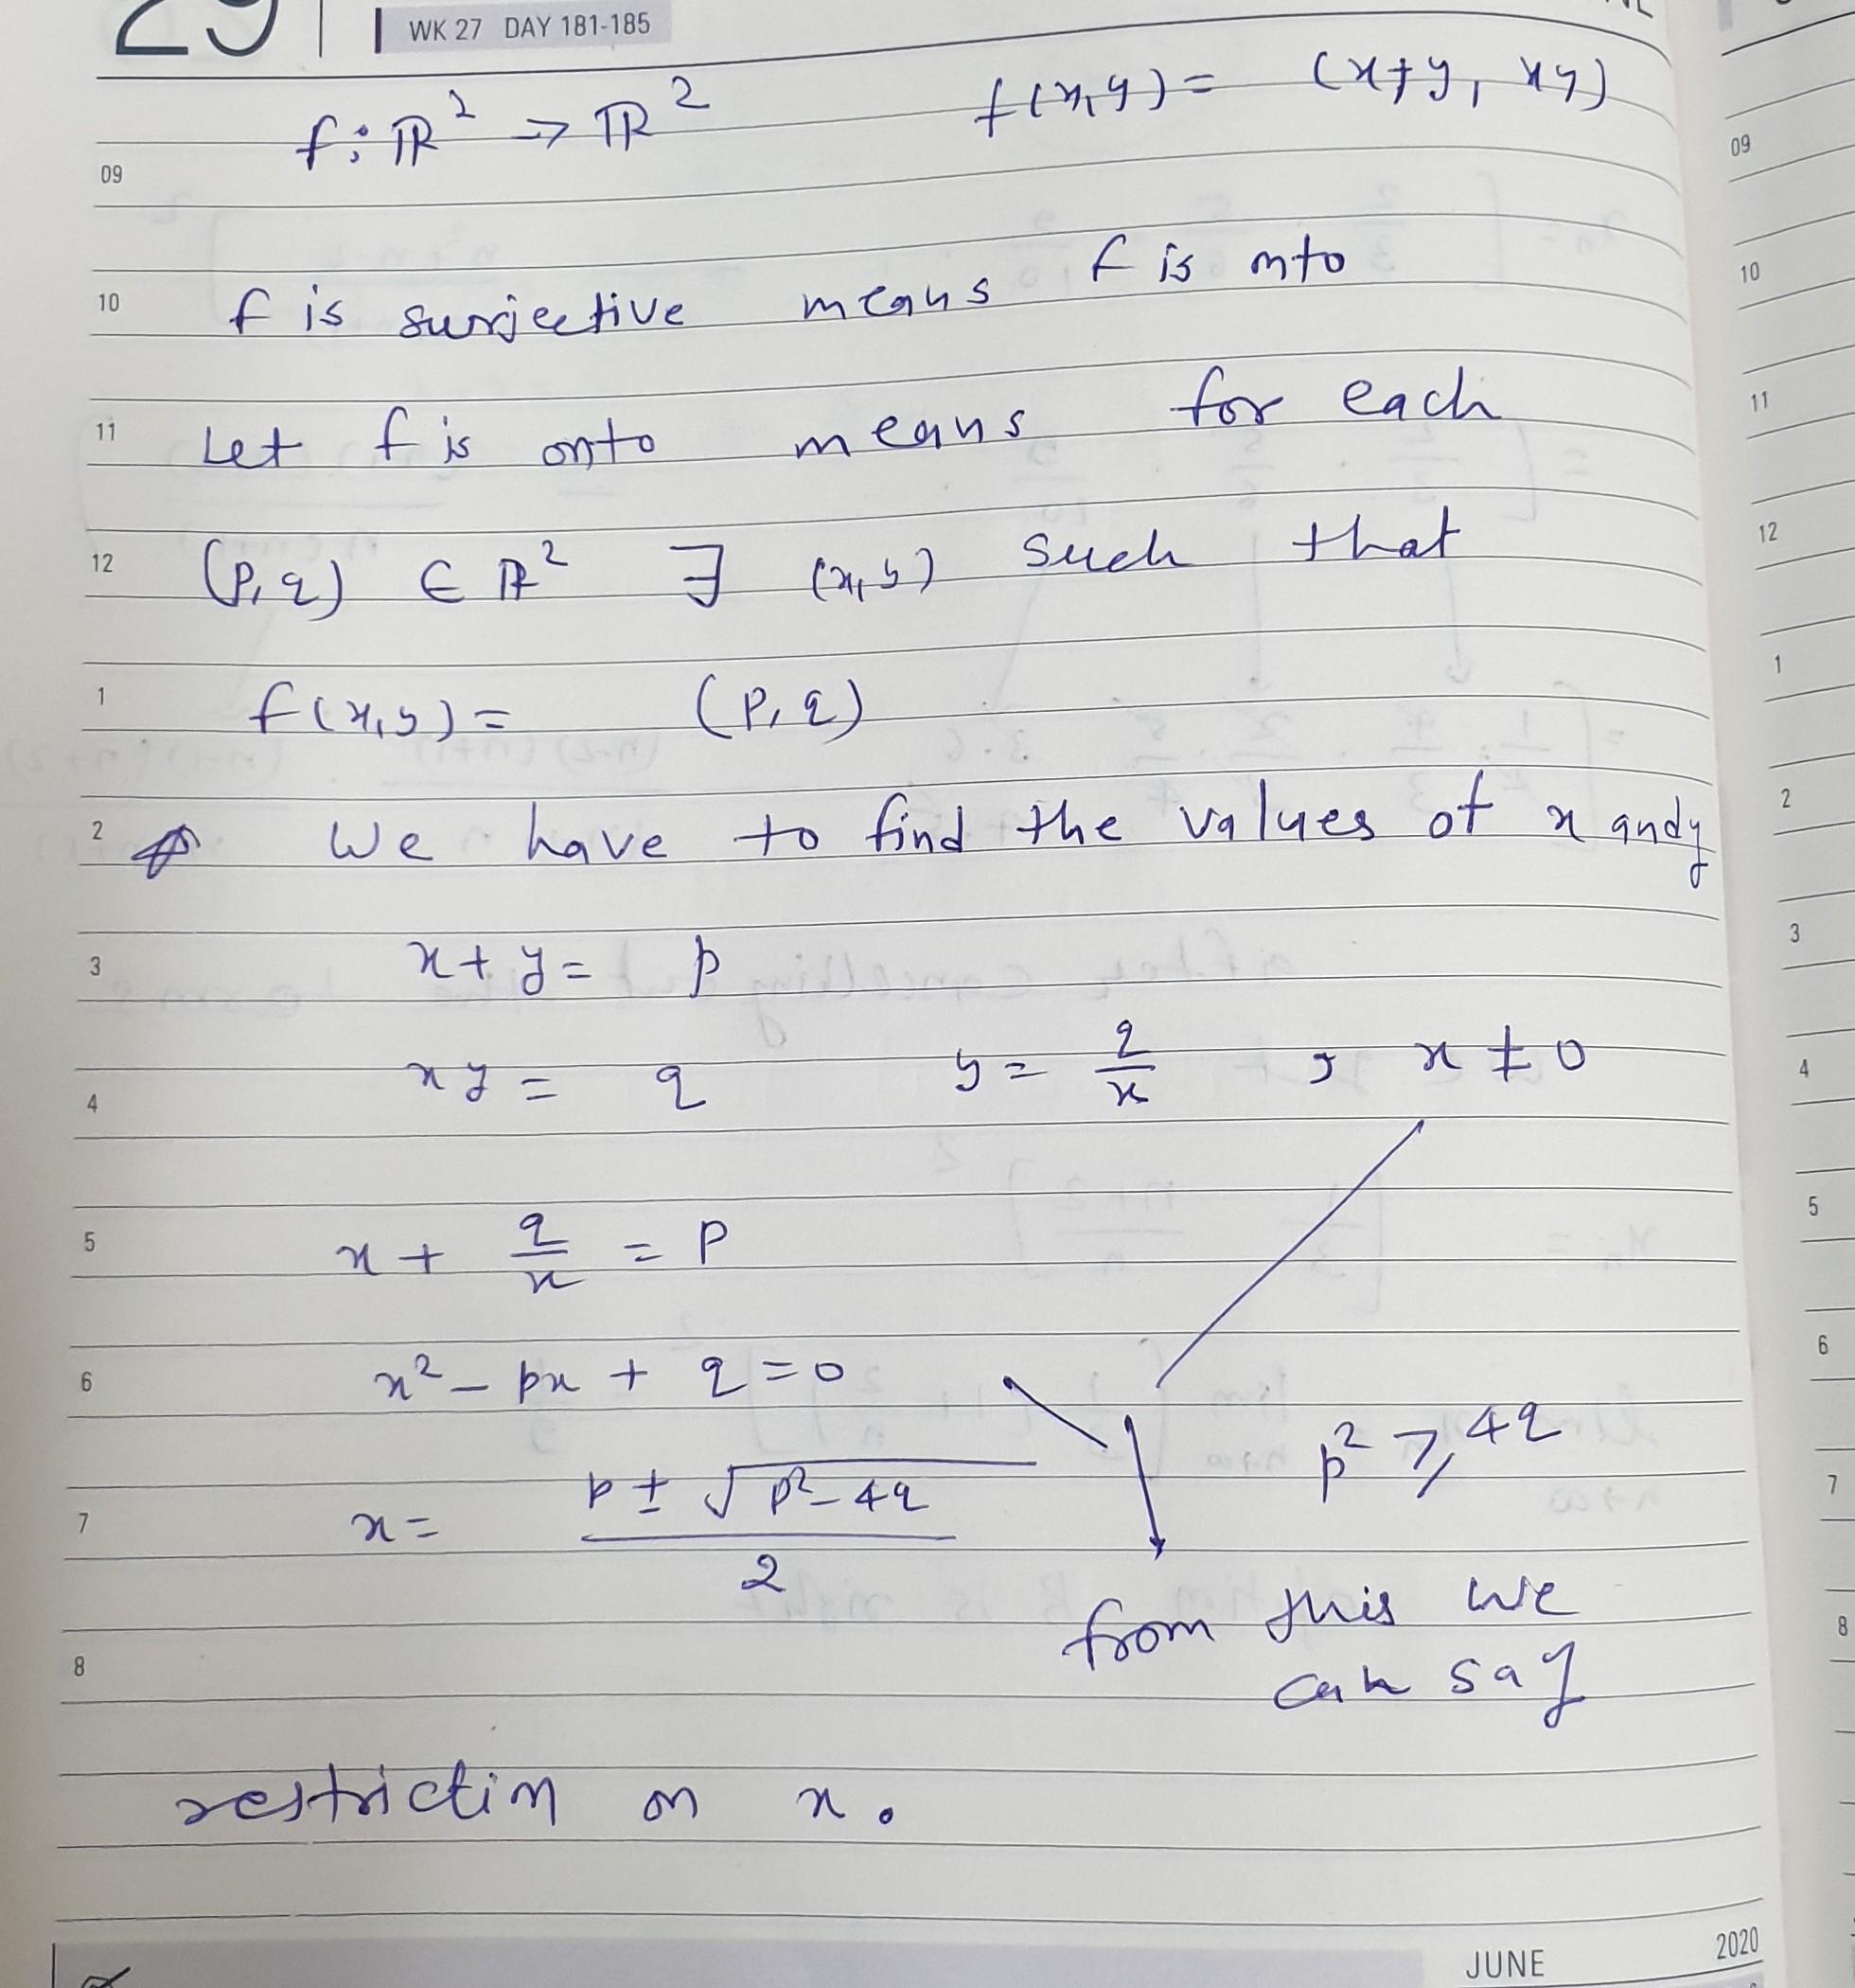 29 WK 27 DAY 181-185
f: ℝ² → ℝ² f(x,y) = (x+y, xy)
f is surjective means f is onto
Let f is onto means for each
(p,q) ∈ ℝ² ∃ (x,y) such that
f(x,y) = (p,q)
We have to find the values of x and y
x + y = p
xy = q y = q/x , x ≠ 0
x + q/x = p
x² - px + q = 0
p² ≥ 4q
x = (p ± √(p² - 4q))/2
from this we
can say
restriction on x.
JUNE 2020
09
10
11
12
1
2
3
4
5
6
7
8
09
10
11
12
1
2
3
4
5
6
7
8